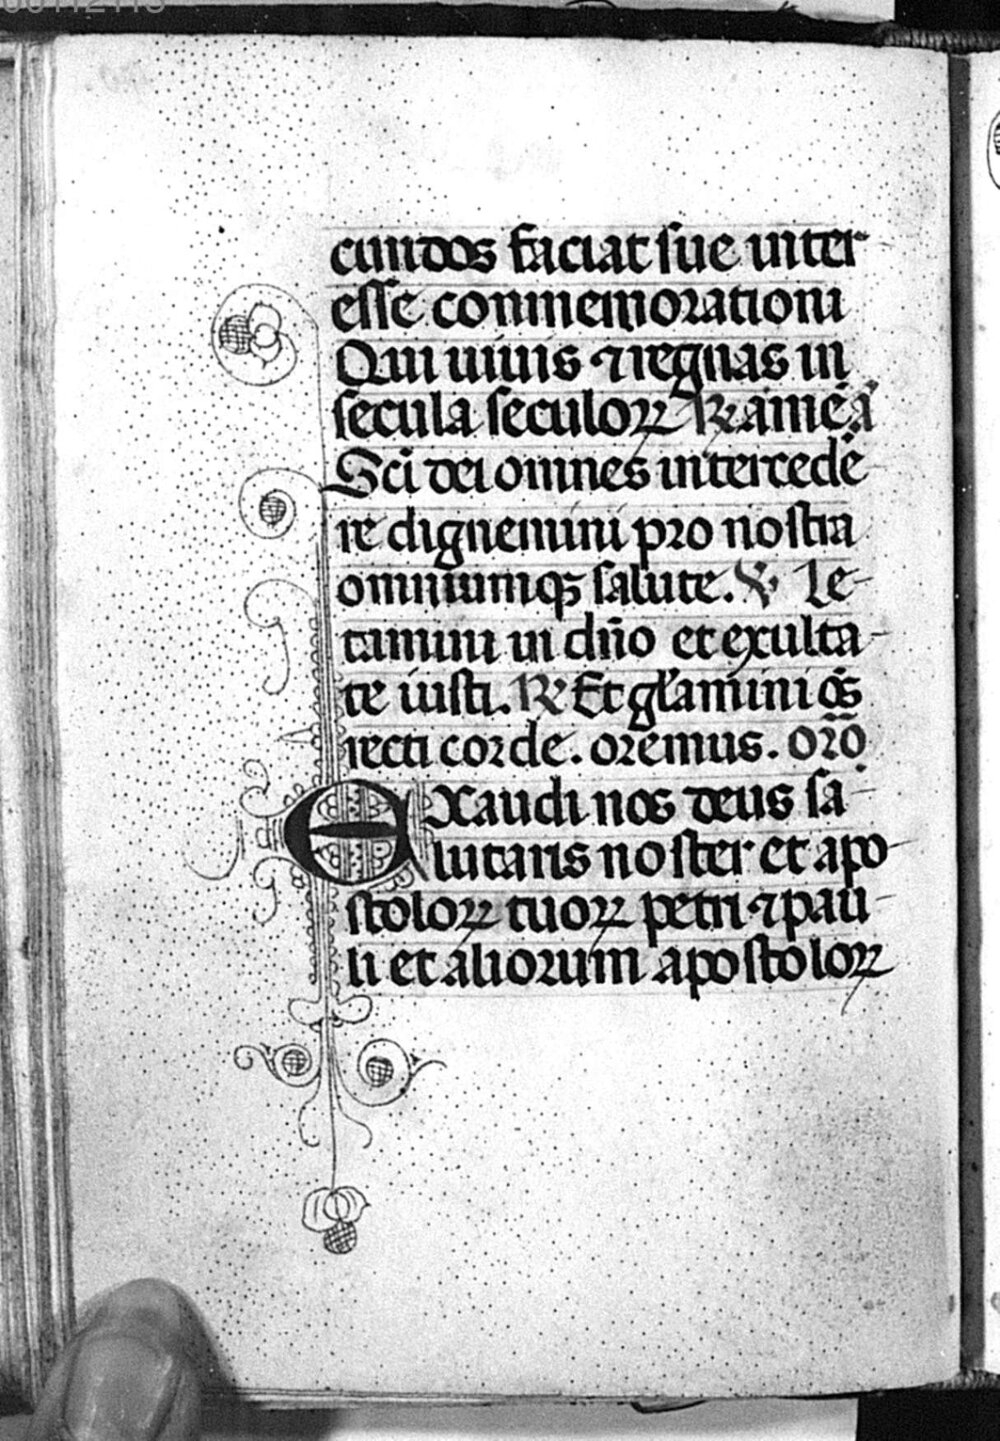 00112113
cundos faciat sue inter
esse commemorationi
Qui uiuis ⁊ regnas in
secula seculoꝝ ℟ amē ā
Sci̅ dei omnes intercede
re dignemini pro nostra
omniumqꝫ salute. ℣ Le-
tamini in dn̄o et exulta-
te iusti. ℟ Et gl̄amini oēs
recti corde. oremus. or̄o
Exaudi nos deus sa-
lutaris noster et apo-
stoloꝝ tuoꝝ petri ⁊ pau-
li et aliorum apostoloꝝ